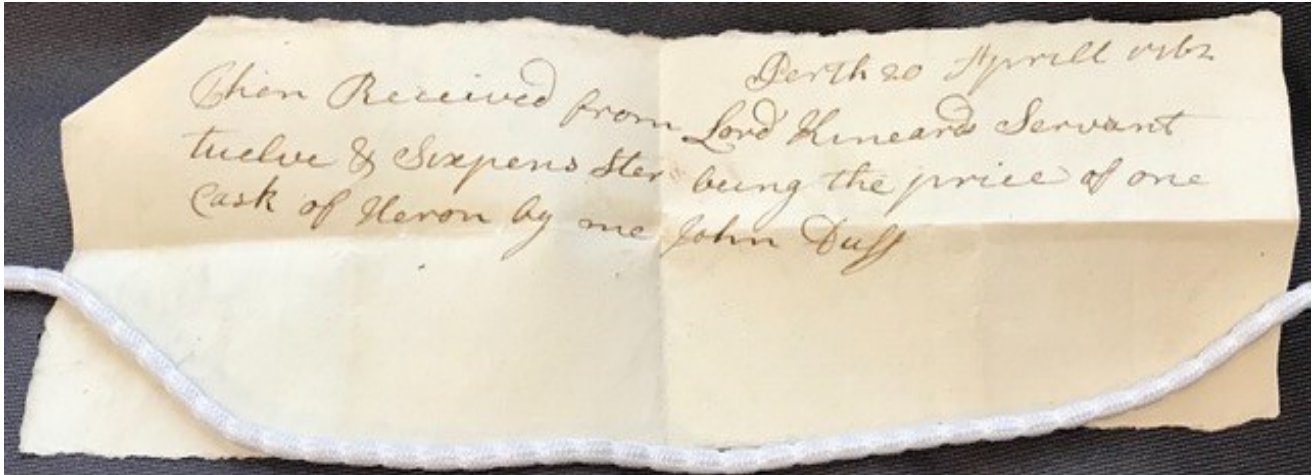 Perth 20 Aprill 1762
Then Received from Lord Kineards Servant
twelve & Sixpens Ster being the price of one
Cask of Heron by me John Duff